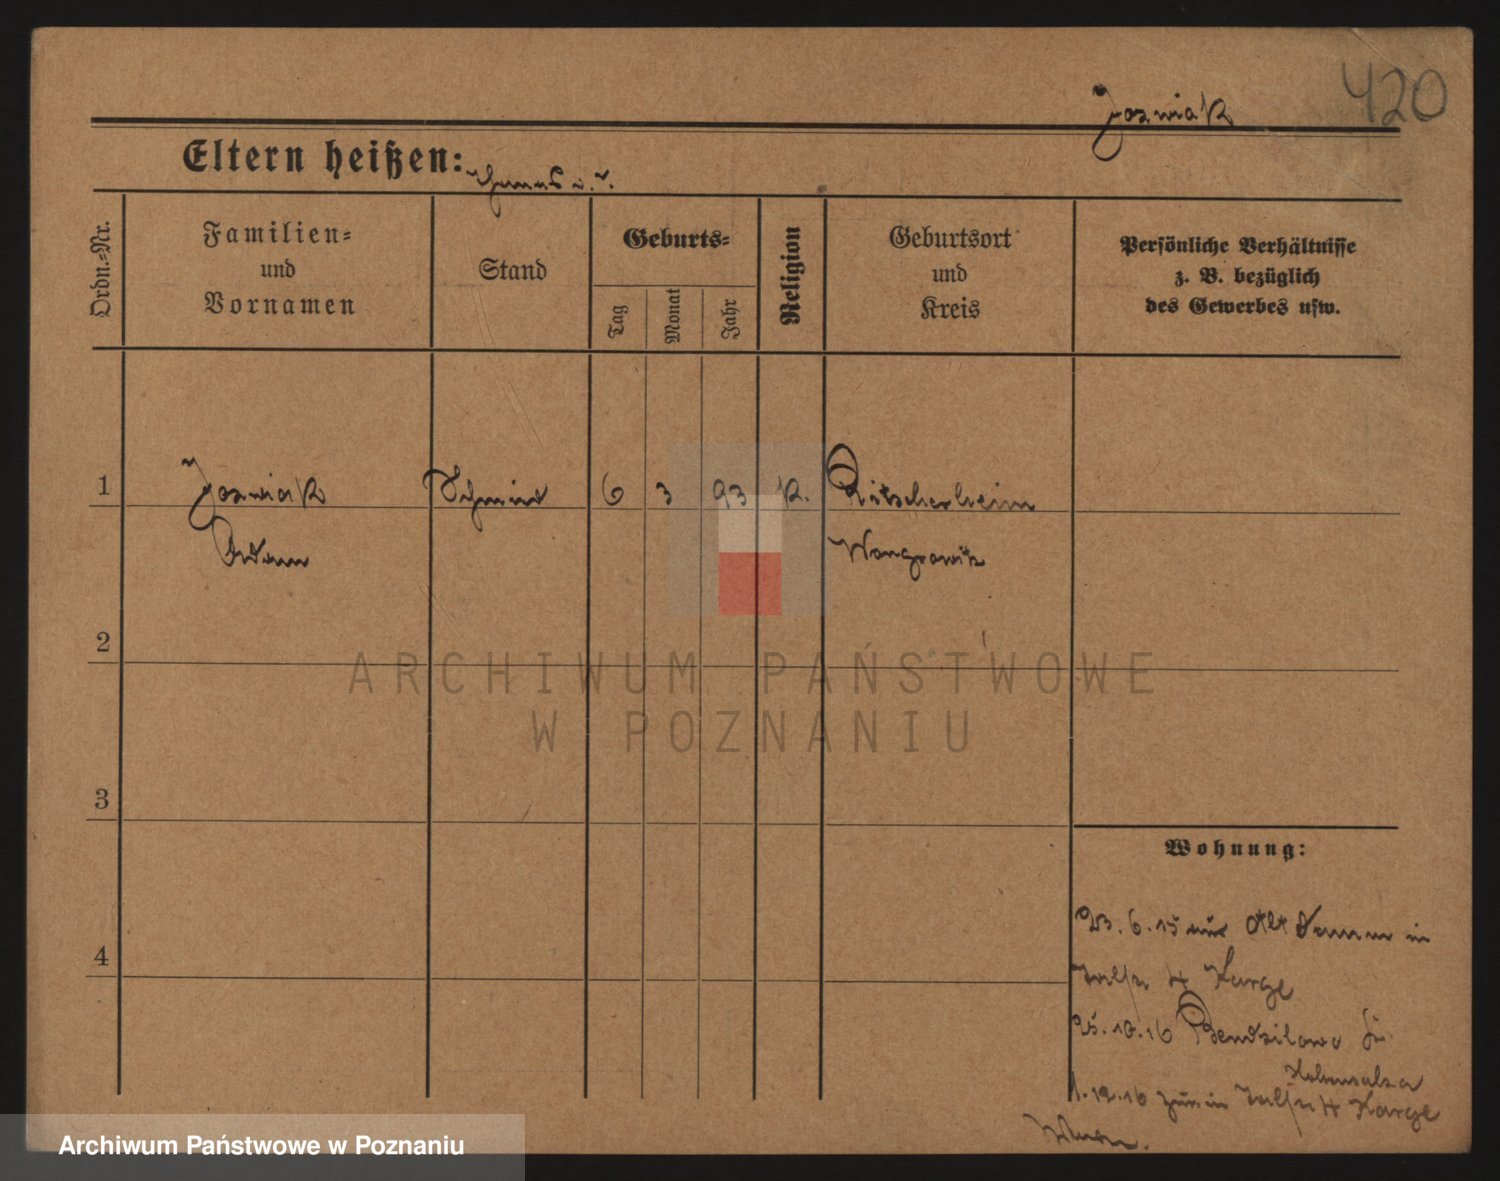 420
Jozwiak
Eltern heißen:
Ordn.-Nr.
Familien-
und
Vornamen
Stand
Geburts-
Tag
Monat
Jahr
Religion
Geburtsort
und
Kreis
Persönliche Verhältnisse
z. B. bezüglich
des Gewerbes usw.
1 Jozwiak Schmied 6 3 93 K. Ritscherheim
Adam Wongrowitz
2
3
4
Wohnung:
23.6.15 aus Alt in
4 Karge
25.10.16
Hohensalza
1.12.16 4 Karge
ARCHIWUM PAŃSTWOWE
W POZNANIU
Archiwum Państwowe w Poznaniu